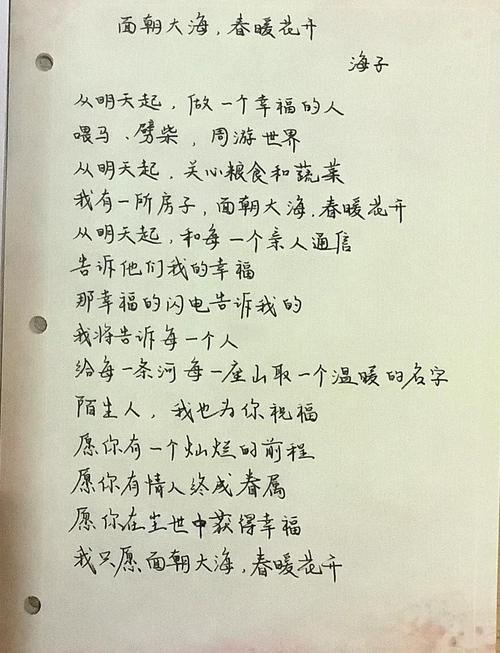 面朝大海，春暖花开
海子
从明天起，做一个幸福的人
喂马、劈柴，周游世界
从明天起，关心粮食和蔬菜
我有一所房子，面朝大海，春暖花开
从明天起，和每一个亲人通信
告诉他们我的幸福
那幸福的闪电告诉我的
我将告诉每一个人
给每一条河每一座山取一个温暖的名字
陌生人，我也为你祝福
愿你有一个灿烂的前程
愿你有情人终成眷属
愿你在尘世中获得幸福
我只愿面朝大海，春暖花开